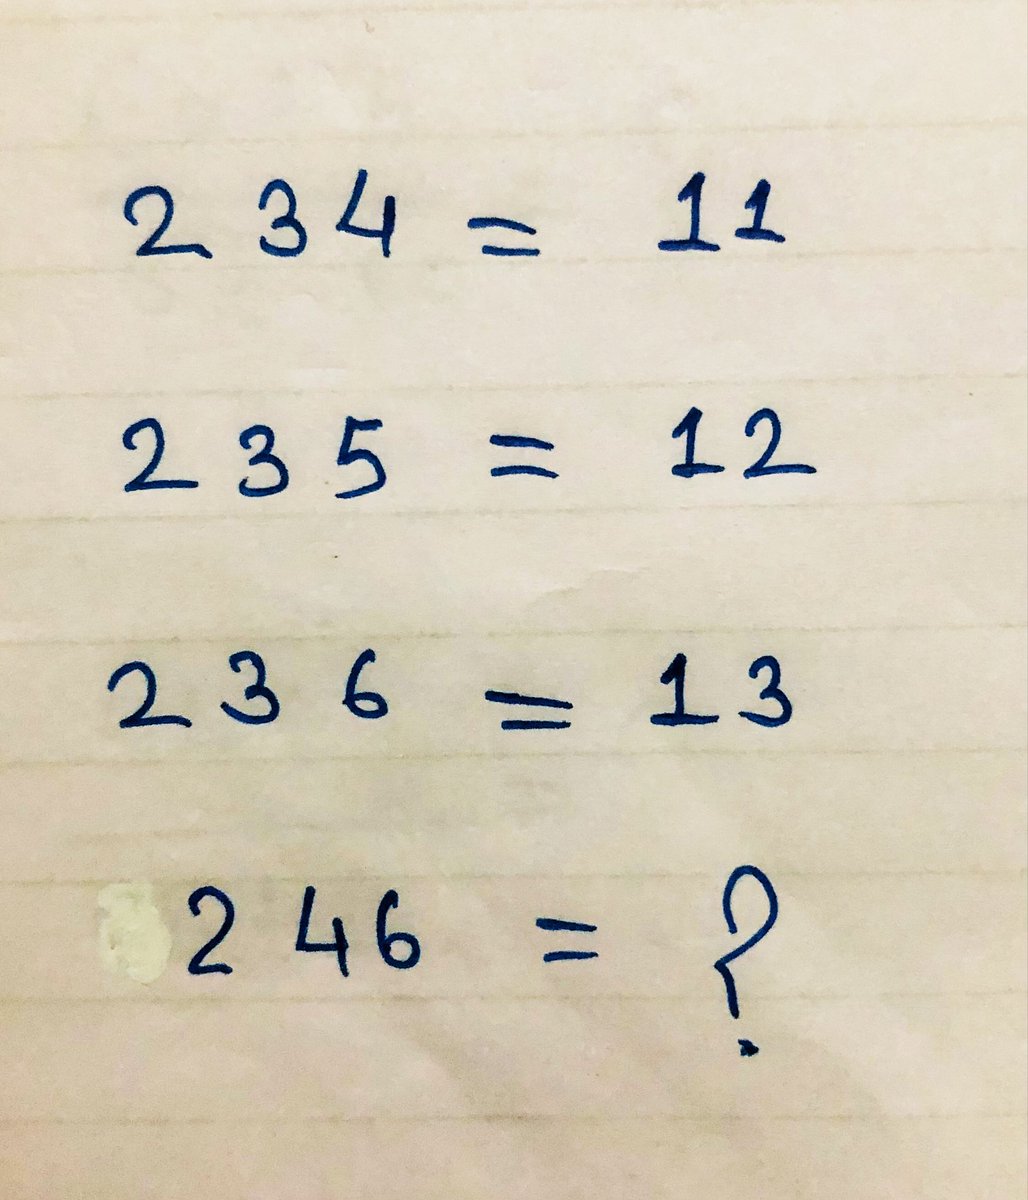 2 3 4 = 11
2 3 5 = 12
2 3 6 = 13
2 4 6 = ?